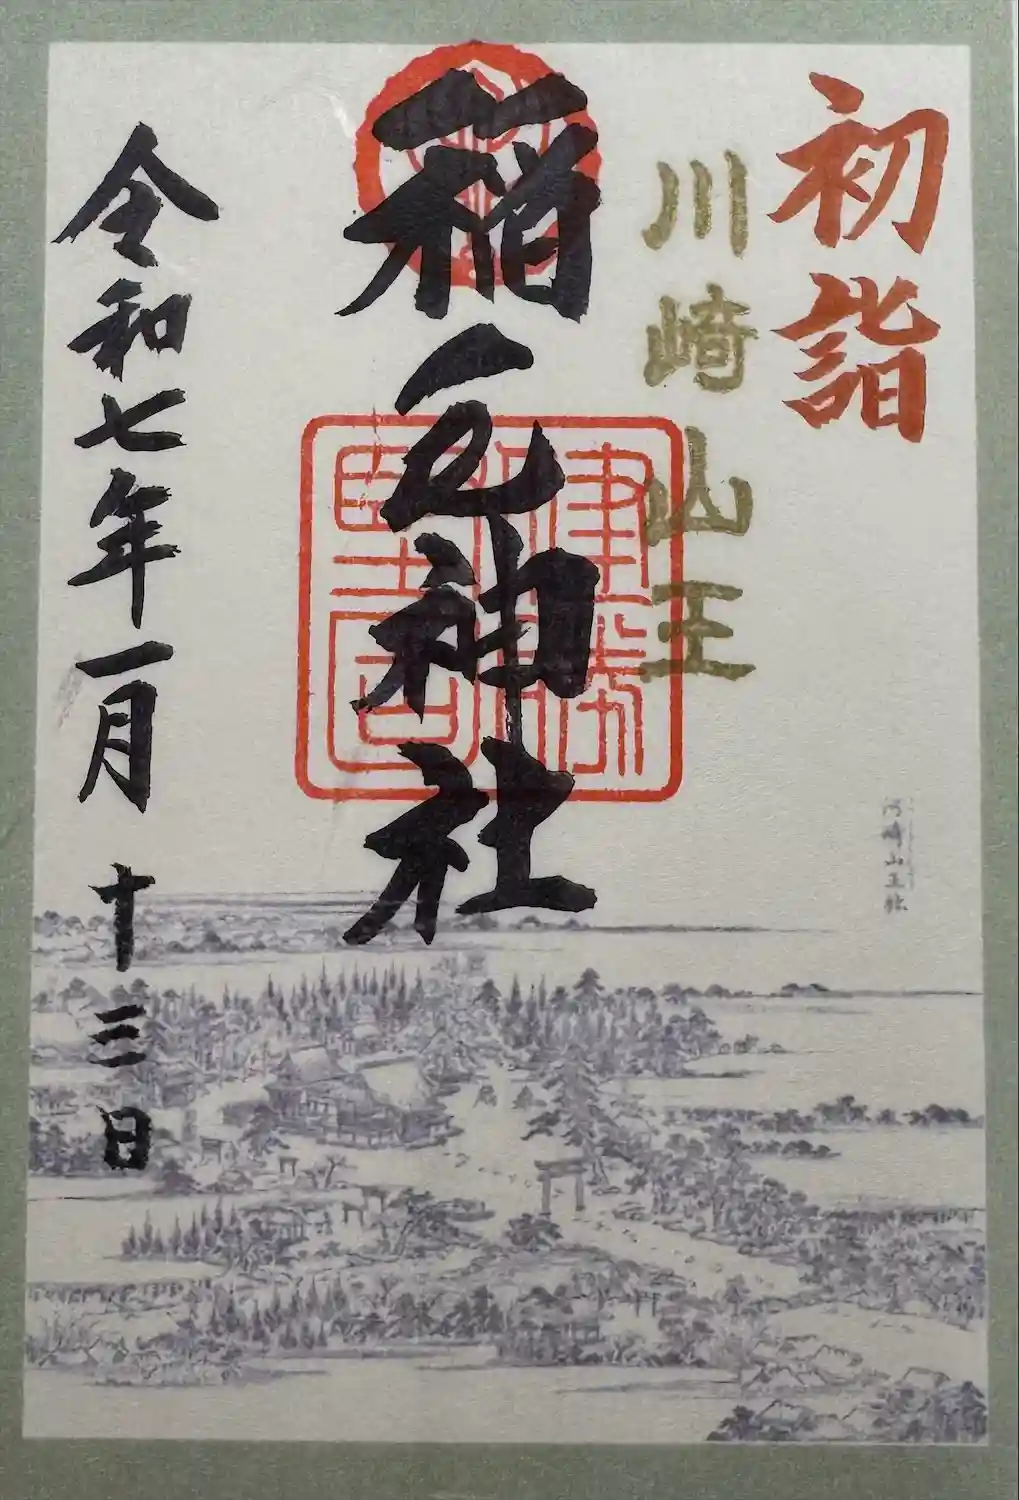 初詣
川崎山王
稲毛神社
令和七年一月十三日
河崎山王社